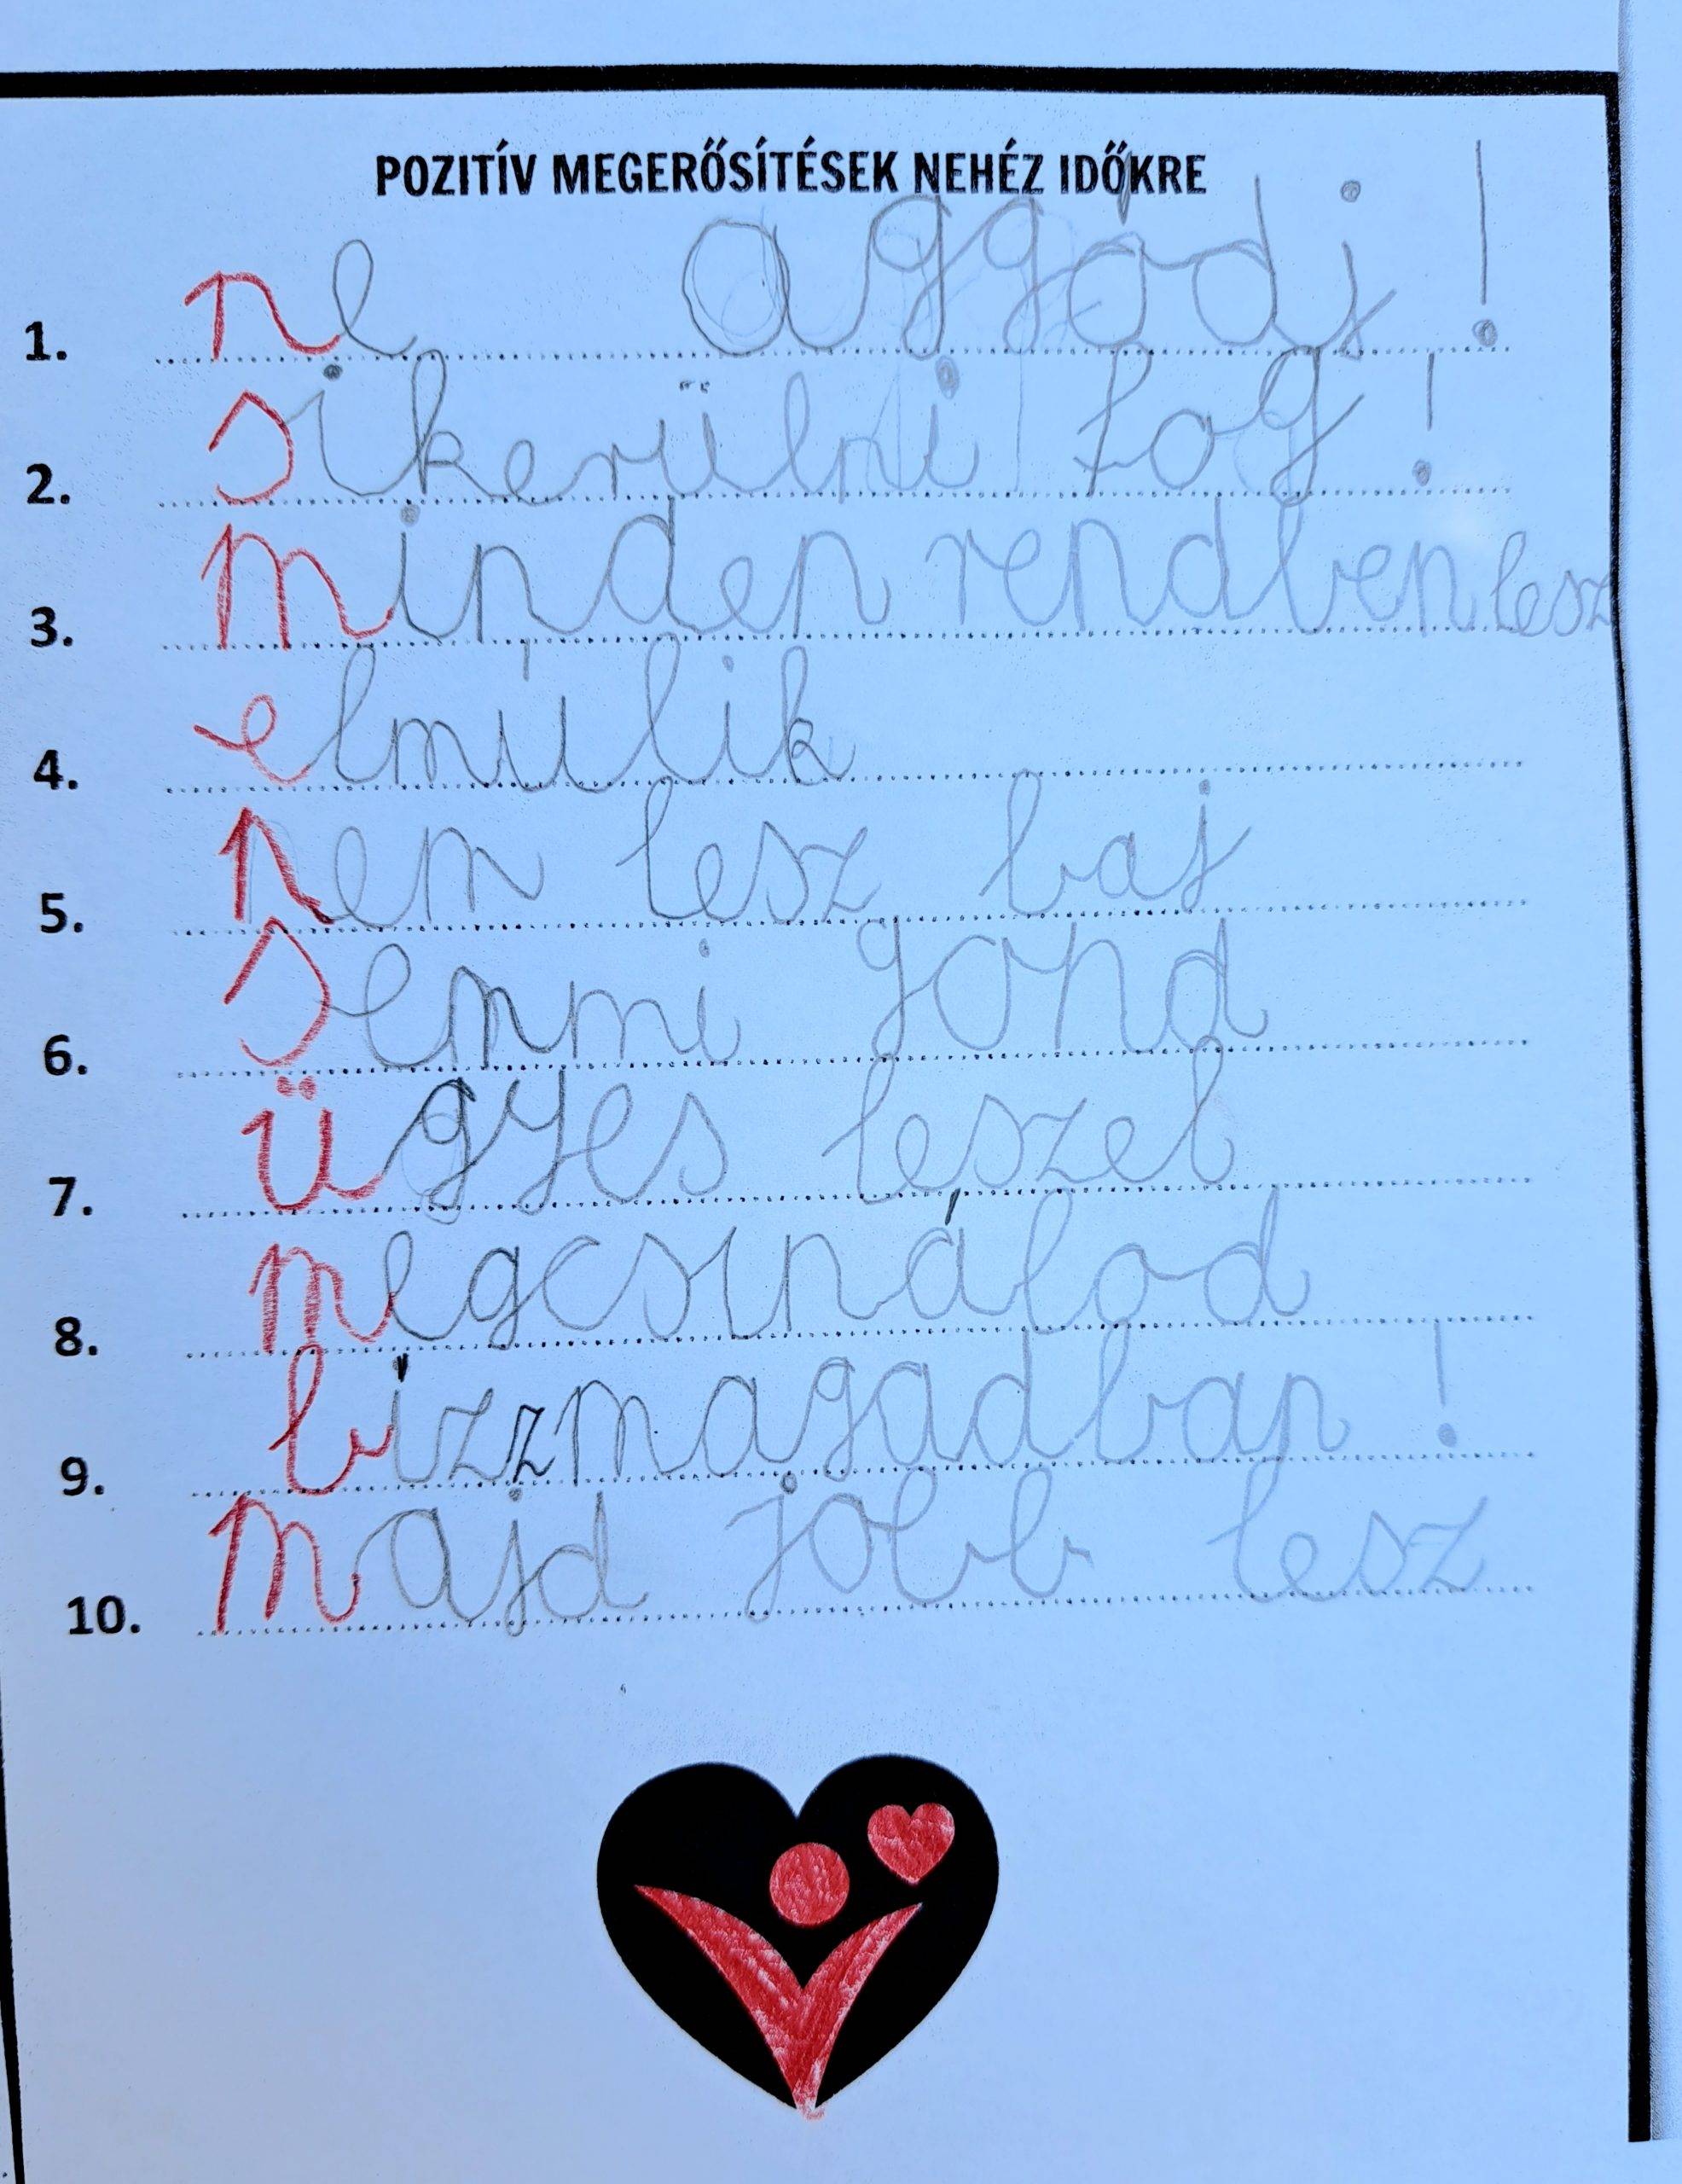 POZITÍV MEGERŐSÍTÉSEK NEHÉZ IDŐKRE
1. ne aggódj!
2. sikerülni fog!
3. minden rendben lesz
4. elmúlik
5. nem lesz baj
6. semmi gond
7. ügyes leszel
8. megcsinálod
9. bízz magadban!
10. majd jobb lesz